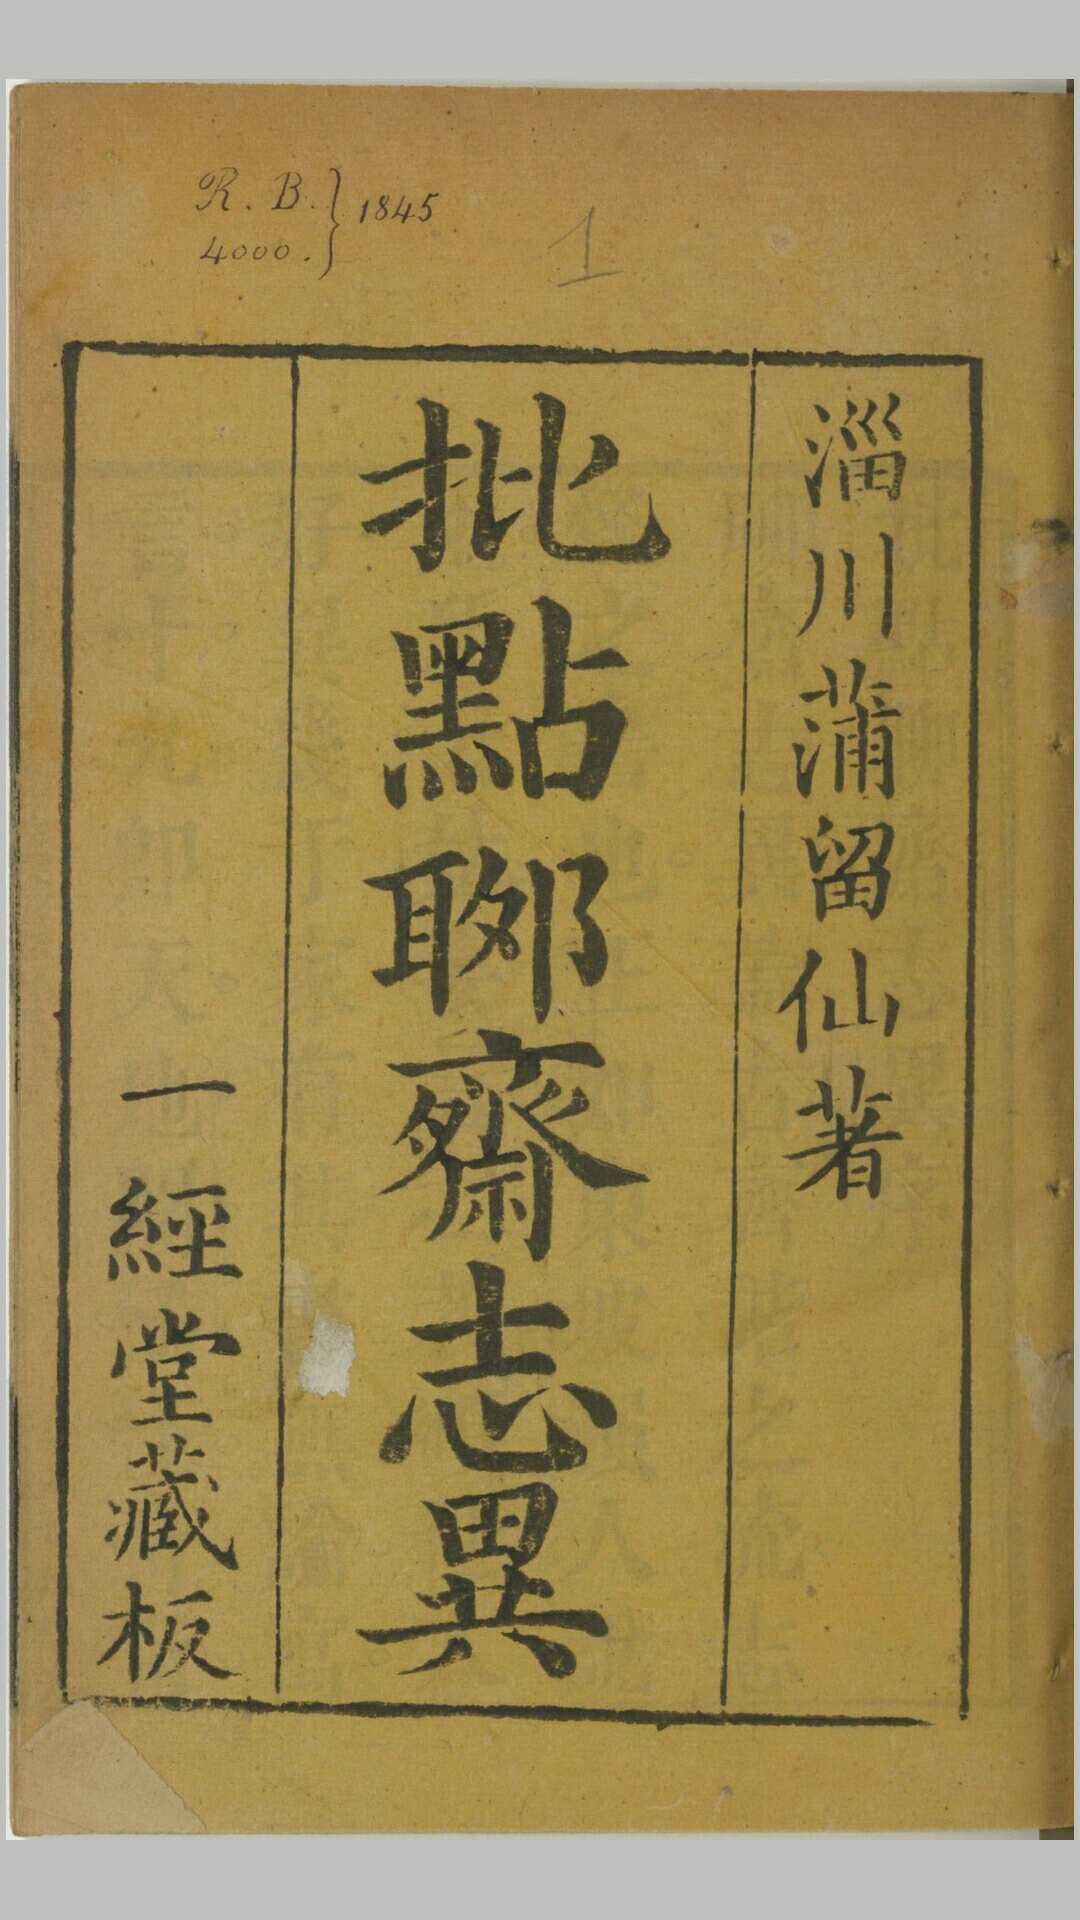 R. B. } 1845
4000.
1
淄川蒲留仙著
批點聊齋志異
一經堂藏板